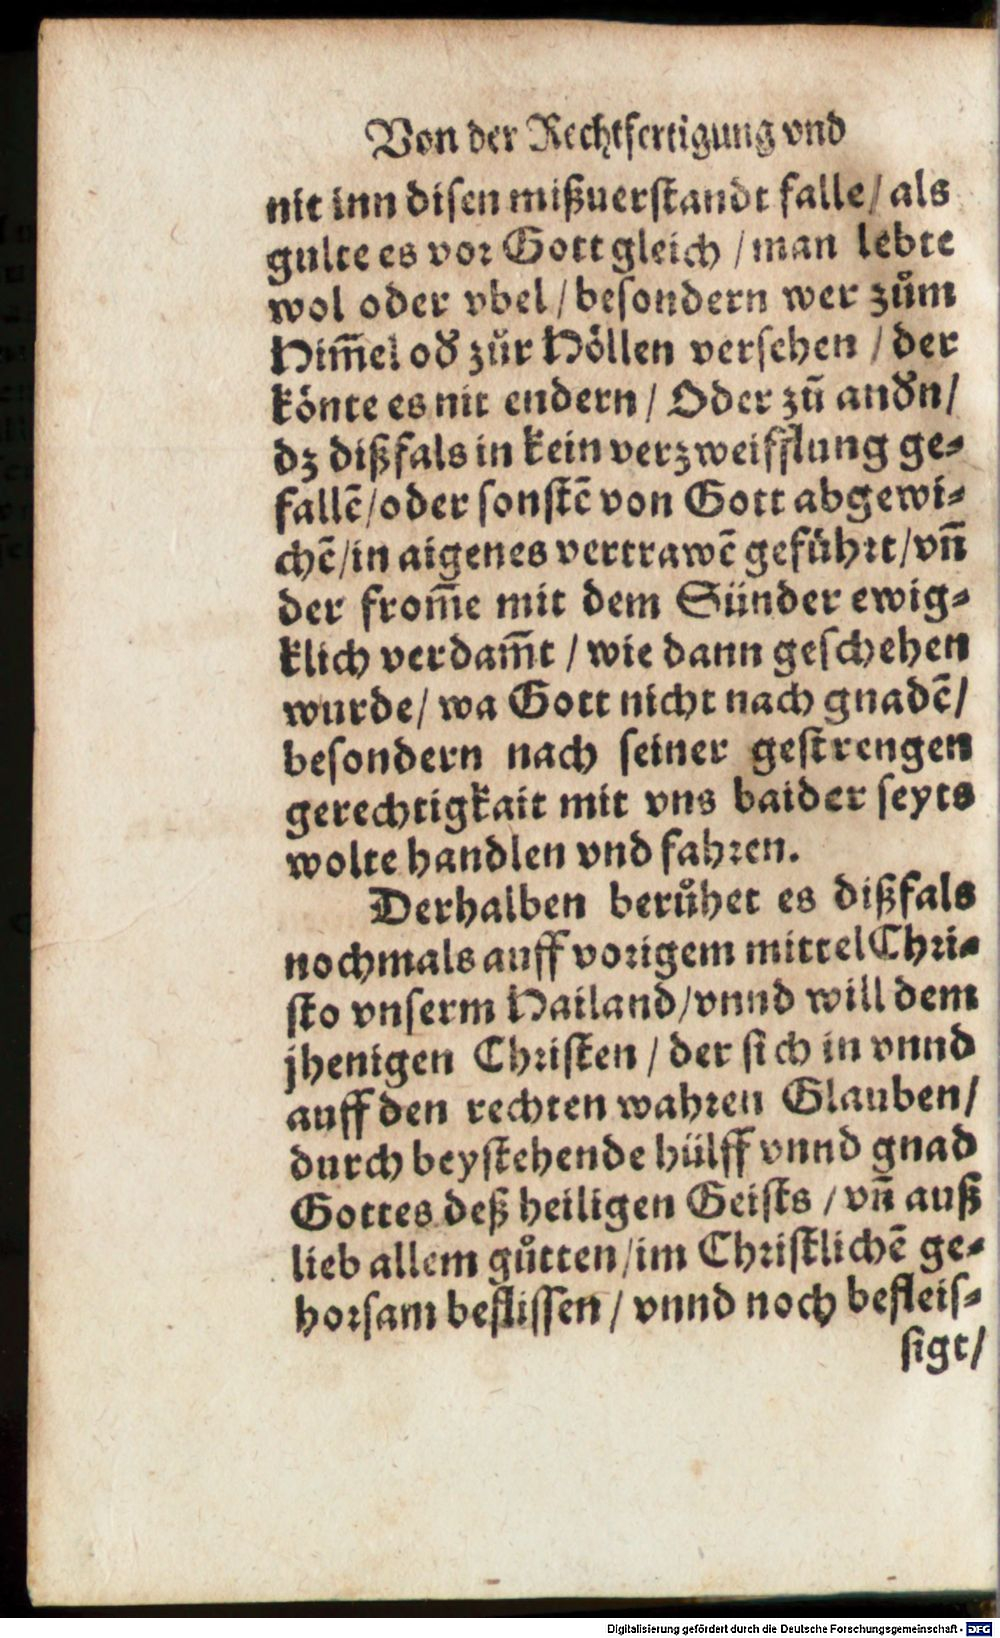 Von der Rechtfertigung vnd
nit inn disen mißuerstandt falle / als
gulte es vor Gott gleich / man lebte
wol oder vbel / besondern wer zům
Him̃el od̾ zůr Höllen versehen / der
könte es nit endern / Oder zů andn̾ /
dz dißfals in kein verzweifflung ge⸗
fallẽ / oder sonstẽ von Gott abgewi⸗
chẽ / in aigenes vertrawẽ geführt / vñ
der from̃e mit dem Sünder ewig⸗
klich verdam̃t / wie dann geschehen
wurde / wa Gott nicht nach gnadẽ /
besondern nach seiner gestrengen
gerechtigkait mit vns baider seyts
wolte handlen vnd fahren.
Derhalben berůhet es dißfals
nochmals auff vorigem mittel Chri⸗
sto vnserm Hailand / vnnd will dem
jhenigen Christen / der sich in vnnd
auff den rechten wahren Glauben /
durch beystehende hülff vnnd gnad
Gottes deß heiligen Geists / vñ auß
lieb allem gůtten / im Christlichẽ ge⸗
horsam beflissen / vnnd noch befleis⸗
sigt /
Digitalisierung gefördert durch die Deutsche Forschungsgemeinschaft - DFG